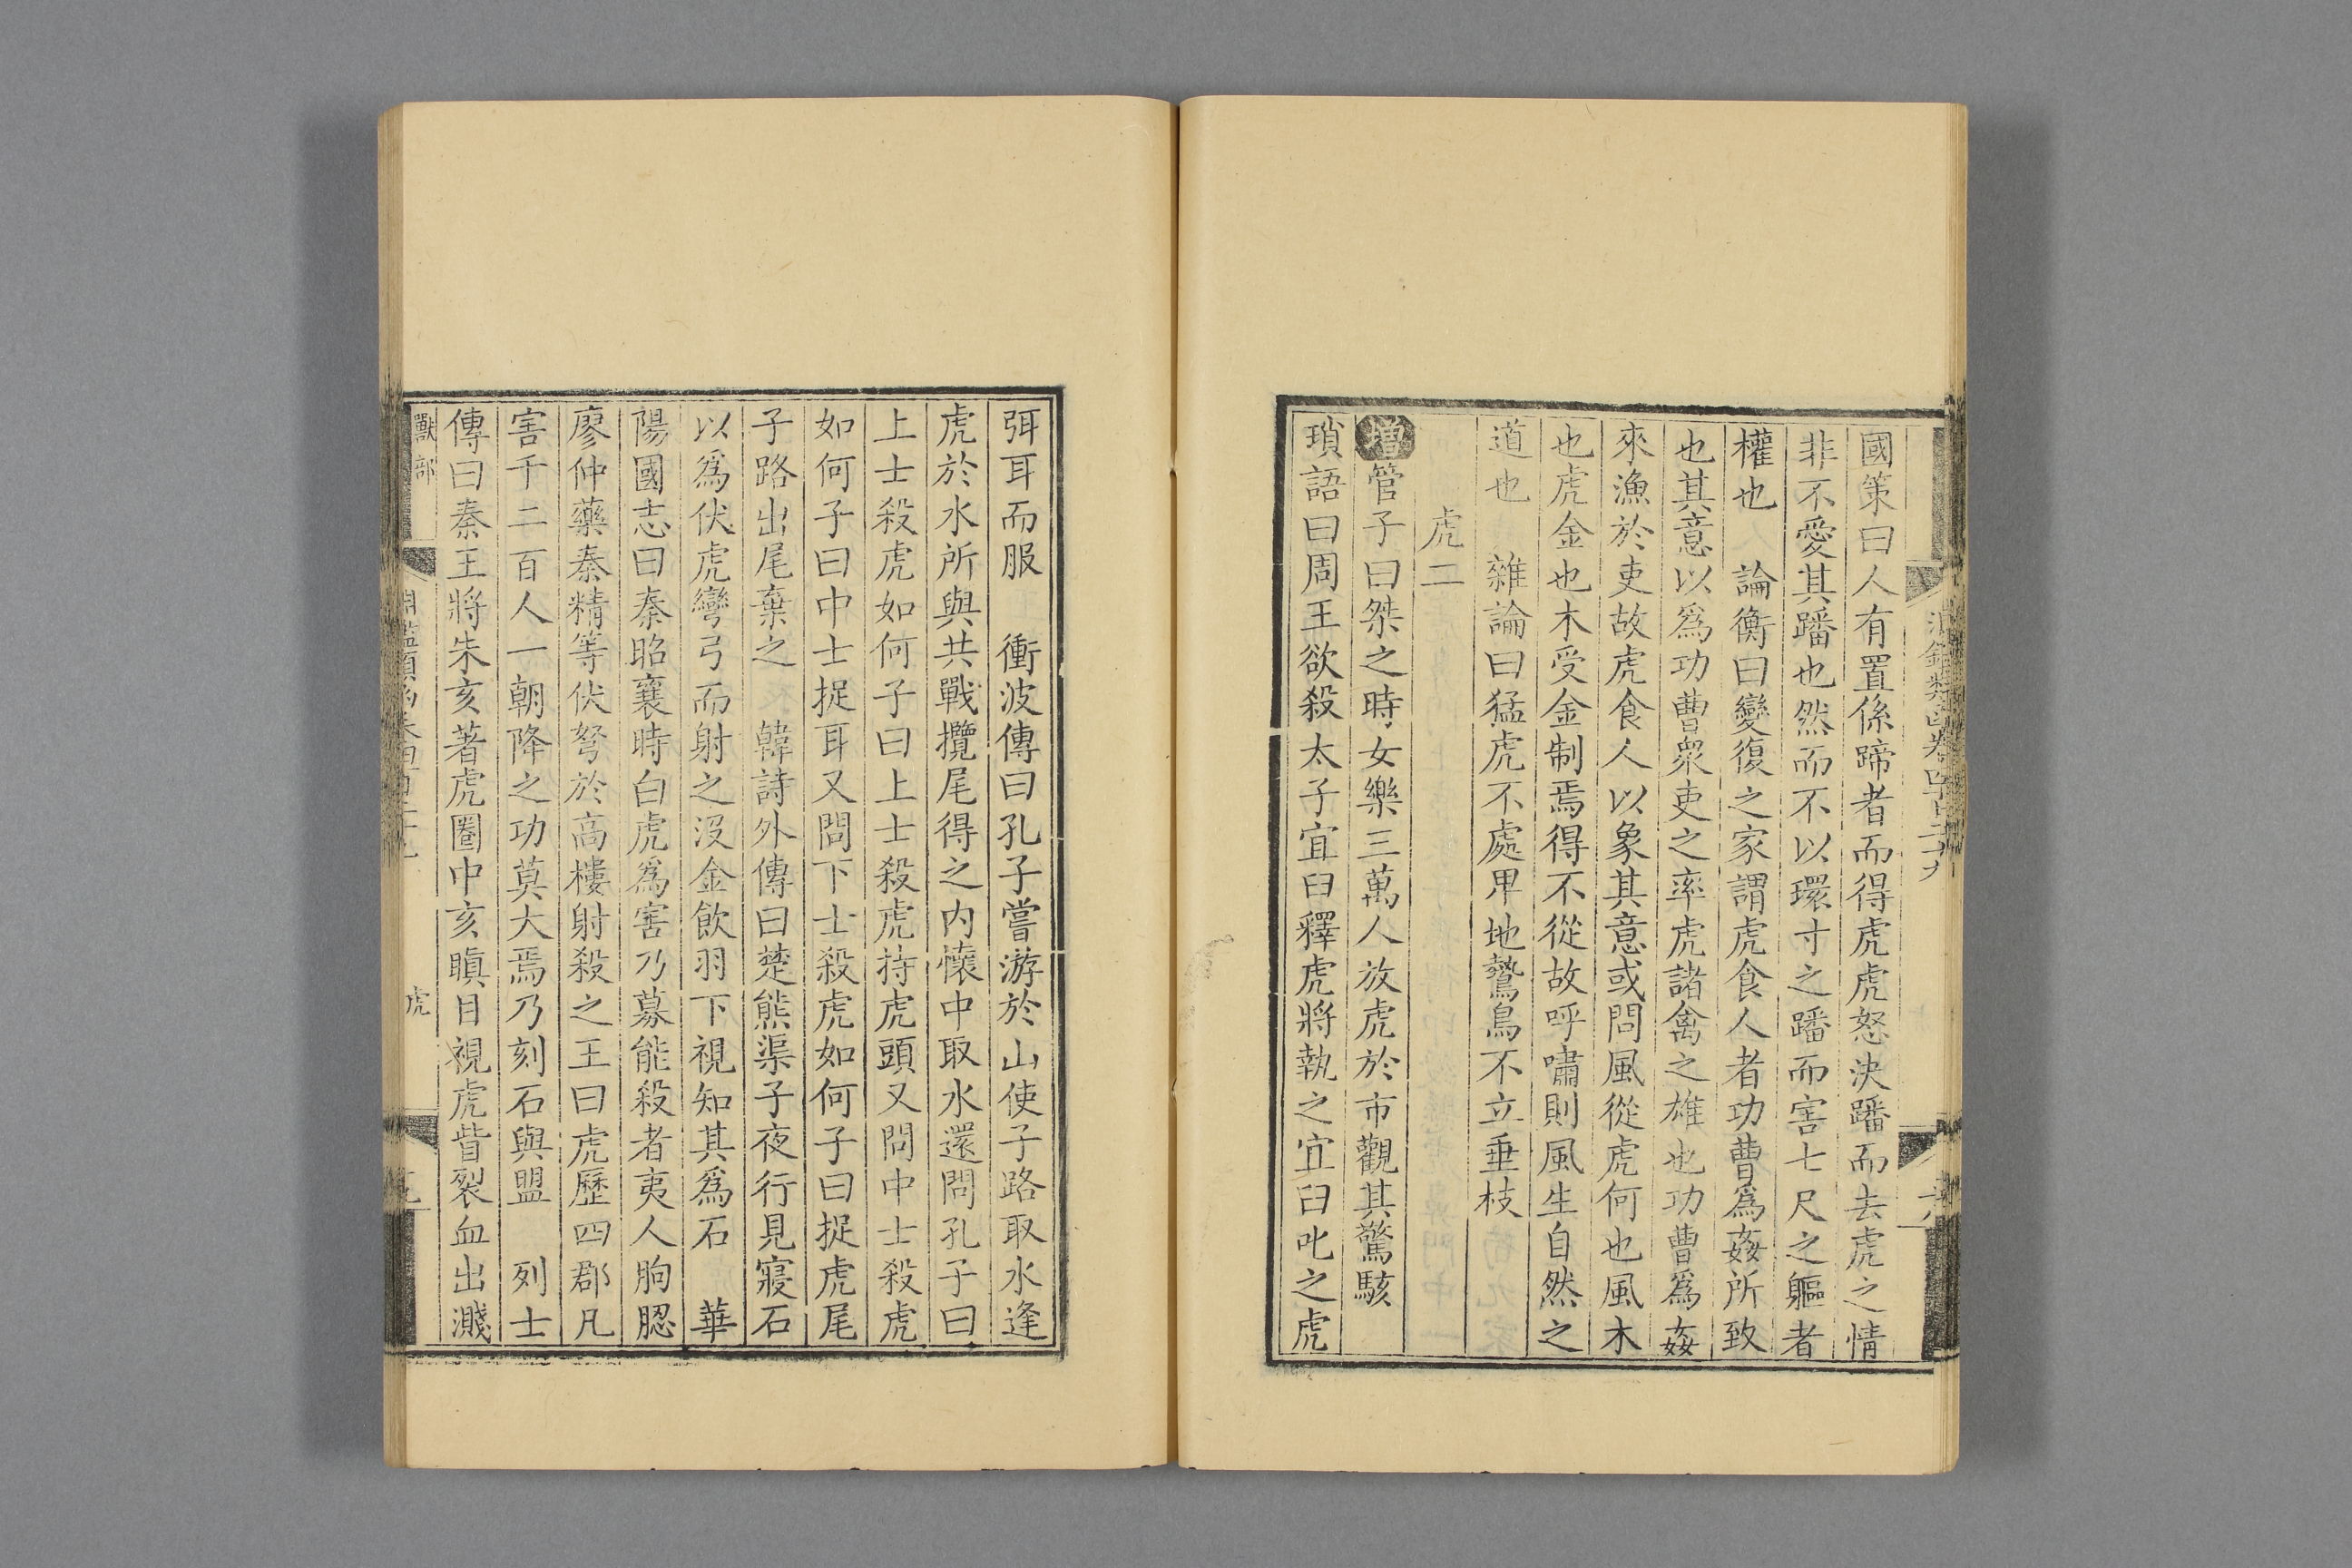 國策曰人有置係蹄者而得虎虎怒決蹯而去虎之情
非不愛其蹯也然而不以環寸之蹯而害七尺之軀者
權也　論衡曰變復之家謂虎食人者功曹爲姦所致
也其意以爲功曹衆吏之率虎諸禽之雄也功曹爲姦
來漁於吏故虎食人以象其意或問風從虎何也風木
也虎金也木受金制焉得不從故呼嘯則風生自然之
道也　雜論曰猛虎不處卑地鷙鳥不立垂枝
虎二
增管子曰桀之時女樂三萬人放虎於市觀其驚駭
瑣語曰周王欲殺太子宜臼釋虎將執之宜臼叱之虎
弭耳而服　衝波傳曰孔子嘗游於山使子路取水逢
虎於水所與共戰攬尾得之內懷中取水還問孔子曰
上士殺虎如何子曰上士殺虎持虎頭又問中士殺虎
如何子曰中士捉耳又問下士殺虎如何子曰捉虎尾
子路出尾棄之　韓詩外傳曰楚熊渠子夜行見寢石
以爲伏虎彎弓而射之沒金飲羽下視知其爲石　華
陽國志曰秦昭襄時白虎爲害乃募能殺者夷人朐䏰
廖仲藥秦精等伏弩於高樓射殺之王曰虎歷四郡凡
害千二百人一朝降之功莫大焉乃刻石與盟　列士
傳曰秦王將朱亥著虎圈中亥瞋目視虎眥裂血出濺
獸部
虎